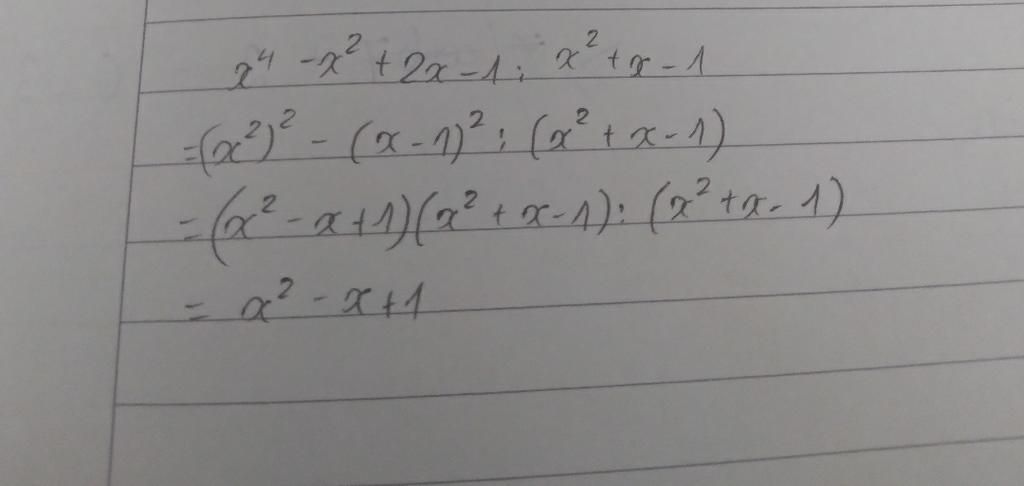 x⁴ - x² + 2x - 1 : x² + x - 1
= (x²)² - (x - 1)² : (x² + x - 1)
= (x² - x + 1)(x² + x - 1) : (x² + x - 1)
= x² - x + 1